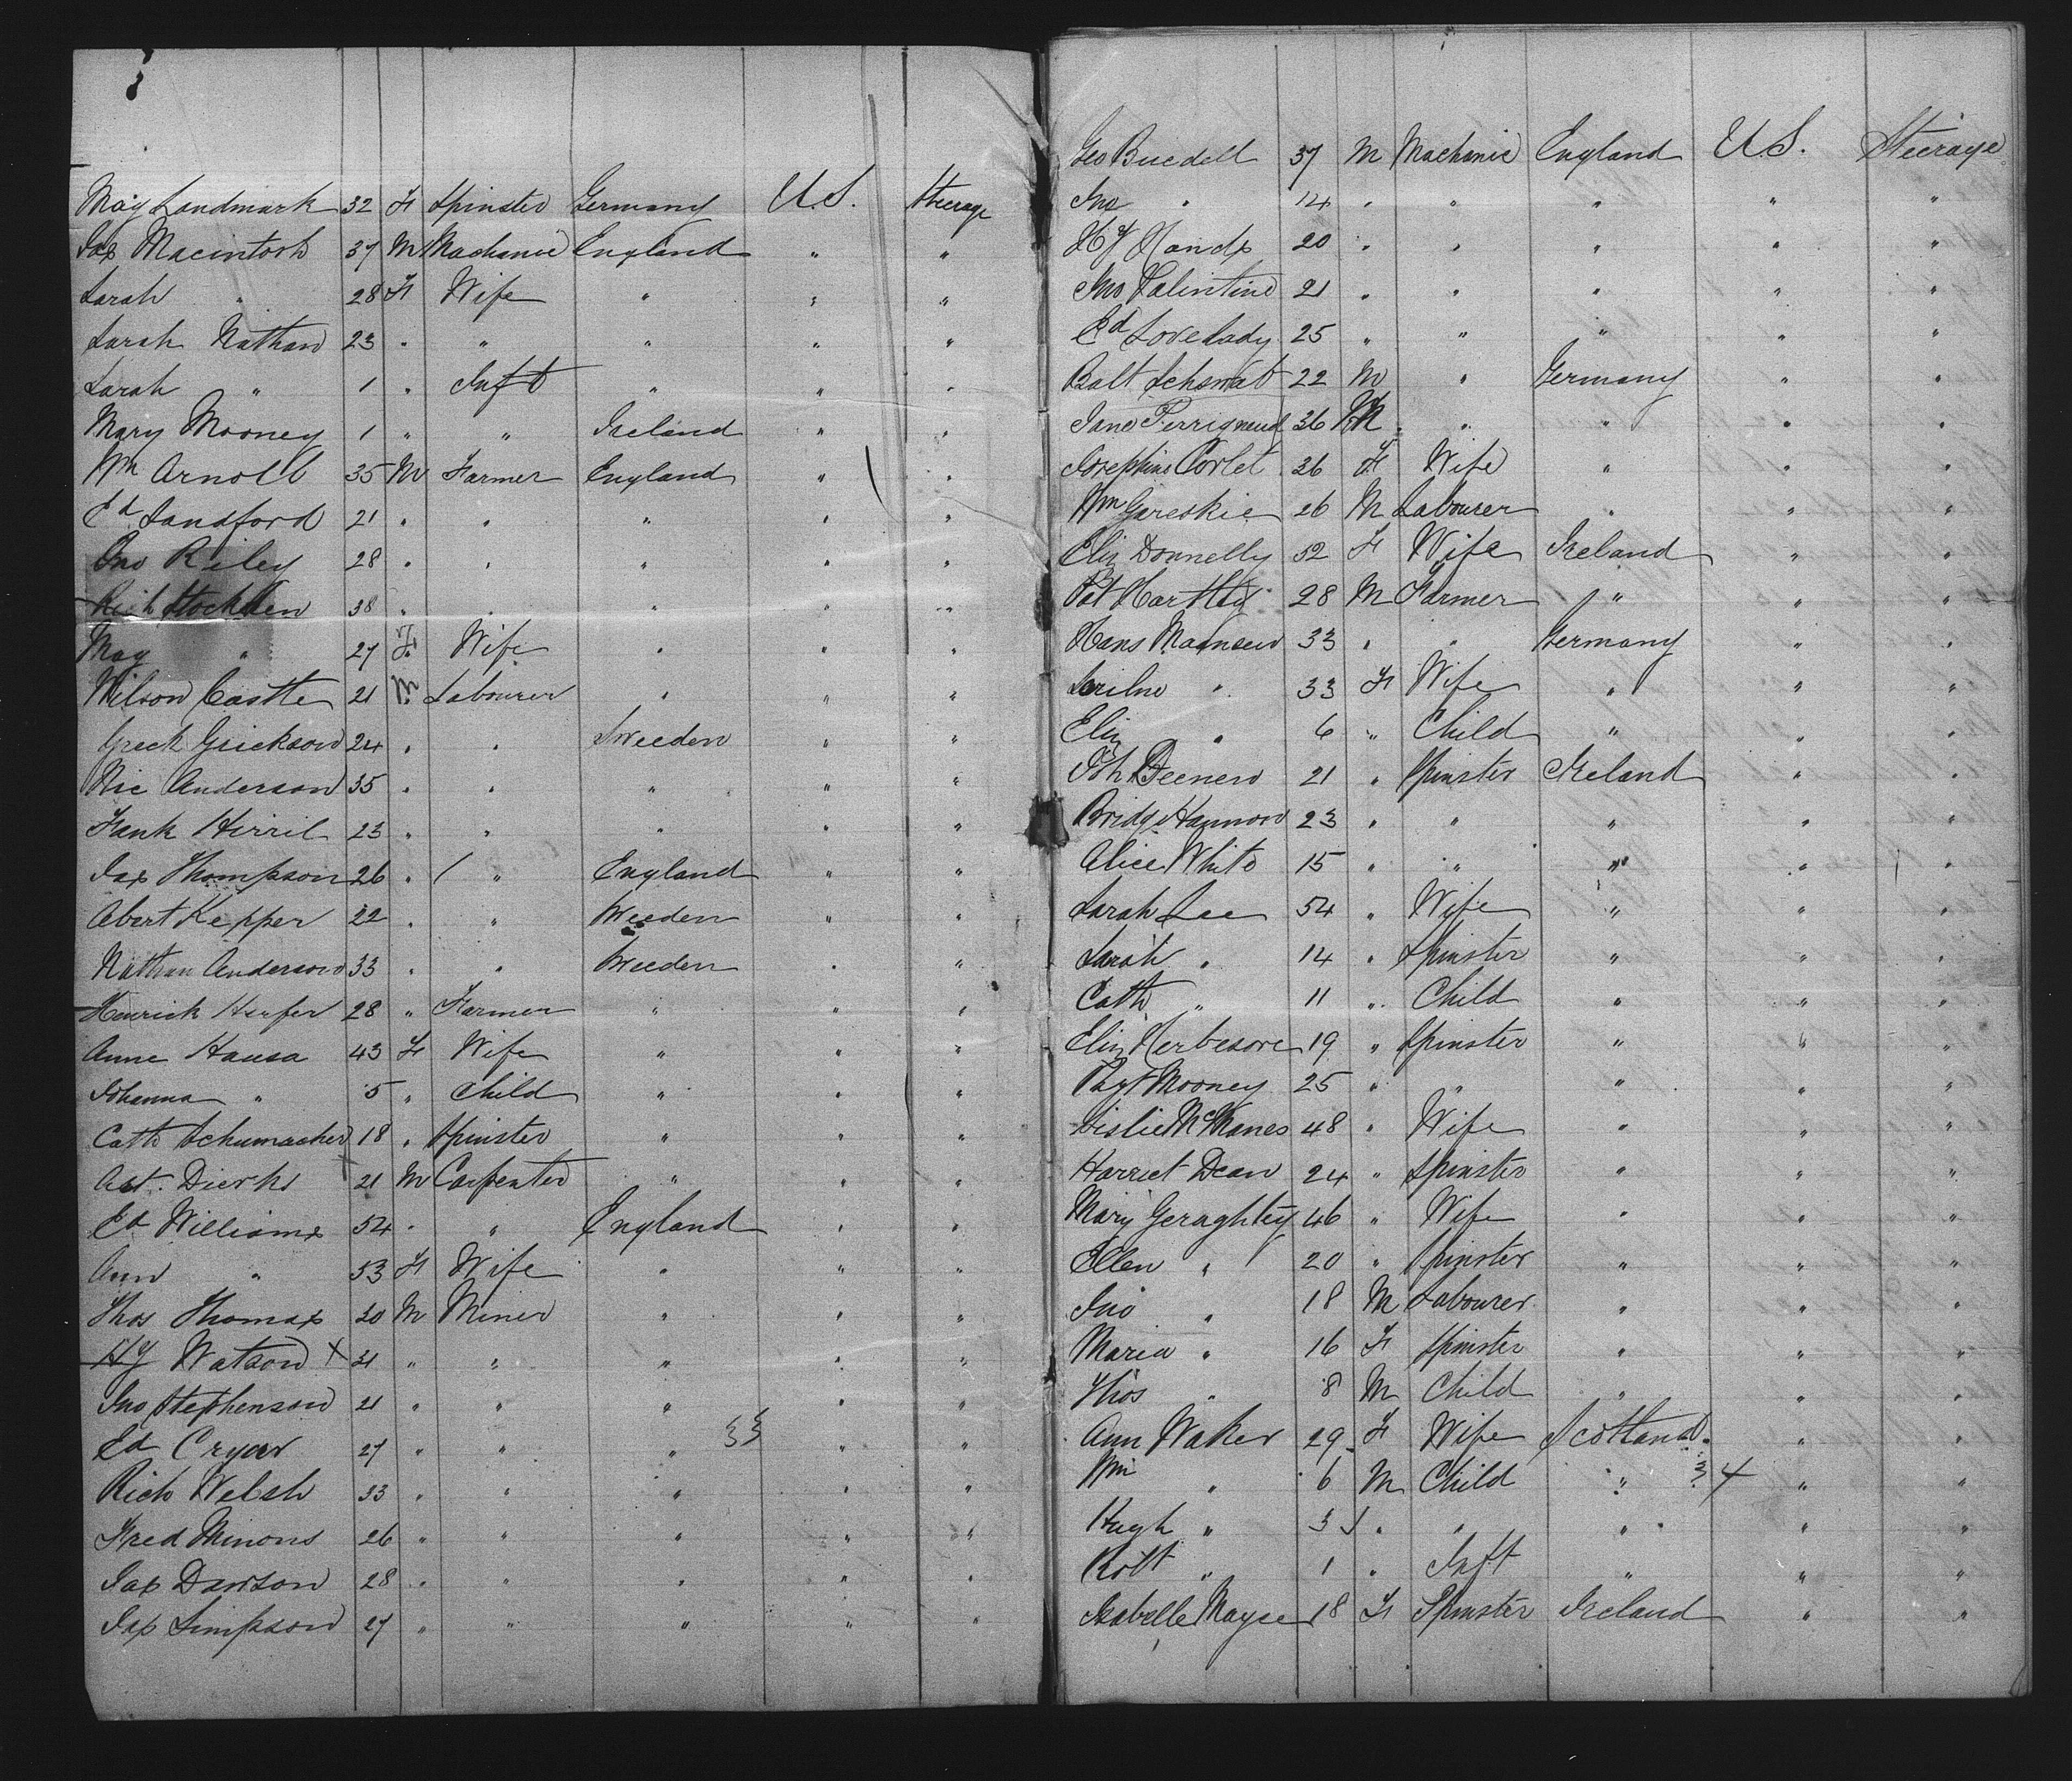 May Landmark 32 F Spinster Germany U.S. Steerage
Jas Macintosh 37 M Machanic England " "
Sarah " 28 F Wife " " "
Sarah Nathan 23 " " " " "
Sarah " 1 " Inft " " "
Mary Mooney 1 " " Ireland " "
Wm Arnoll 35 M Farmer England " "
Ed Sandford 21 " " " " "
Jno Riley 28 " " " " "
Rich Stockden 38 " " " " "
May " 27 F Wife " " "
Wilson Castle 21 M Labourer " " "
Greck Grickson 24 " " Sweeden " "
Nic Anderson 35 " " " " "
Frank Hirril 23 " " " " "
Jas Thompson 26 " " England " "
Abert Kepper 22 " " Weeden " "
Nathan Anderson 33 " " Weeden " "
Henrick Herfer 28 " Farmer " " "
Anne Hansa 43 F Wife " " "
Johanna " 5 " Child " " "
Cath Schumacher 18 " Spinster " " "
Ast. Dierks 21 M Carpenter " " "
Ed Williams 54 " " England " "
Ann " 53 F Wife " " "
Thos Thomas 30 M Miner " " "
Hy Watson X 31 " " " " "
Jno Stephenson 21 " " " " "
Ed Cryar 27 " " " " "
Rich Welsh 33 " " " " "
Fred Minons 26 " " " " "
Jas Dawson 28 " " " " "
Jas Simpson 27 " " " " "
Geo Buedell 37 M Machanic England U.S. Steerage
Jno " 14 " " " " "
Hy Hands 20 " " " " "
Jno Valintine 21 " " " " "
Ed Lovelady 25 " " " " "
Balt Schsmat 22 M " Germany " "
Jane Perrignaud 36 M " " " "
Josephine Corlet 36 F Wife " " "
Wm Gareskie 26 M Labourer " " "
Eliz Donnelly 52 F Wife Ireland " "
Pat Hartley 28 M Farmer " " "
Hans Madnsen 33 " " Germany " "
" 33 F Wife " " "
Eliz " 6 " Child " " "
Joh Deenen 21 " Spinster Ireland " "
Bridgt Hannon 23 " " " " "
Alice White 15 " " " " "
Sarah Lee 54 " Wife " " "
Sarah " 14 " Spinster " " "
Cath " 11 " Child " " "
Eliz Herbesore 19 " Spinster " " "
Magt Mooney 25 " " " " "
Lislie McManes 48 " Wife " " "
Harriet Dean 24 " Spinster " " "
Mary Geraghtey 46 " Wife " " "
Ellen " 20 " Spinster " " "
Jno " 18 M Labourer " " "
Maria " 16 F Spinster " " "
Thos " 8 M Child " " "
Ann Waker 29 F Wife Scotland " "
Wm " 6 M Child " 3 4 " "
Hugh " 3 " " " " "
Robt " 1 " Inft " " "
Isabelle Mayse 18 F Spinster Ireland " "